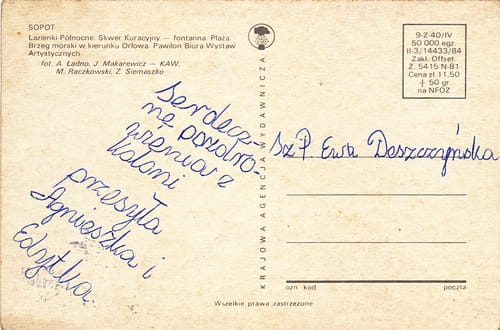 SOPOT
Łazienki Północne. Skwer Kuracyjny — fontanna. Plaża
Brzeg morski w kierunku Orłowa. Pawilon Biura Wystaw
Artystycznych
fot. A. Ładno, J. Makarewicz — KAW,
M. Raczkowski, Z. Siemaszko
9-Z-40/IV
50 000 egz
II-3/14433/84
Zakł. Offset.
Z. 5415 N-81
Cena zł 11,50
+ 50 gr
na NFOZ
serdecz-
ne pozdro-
wienia z
koloni
przesyła
Agnieszka i
Edytka.
KRAJOWA AGENCJA WYDAWNICZA
Sz P. Ewa Deszczyńska
ozn kod
poczta
Wszelkie prawa zastrzeżone